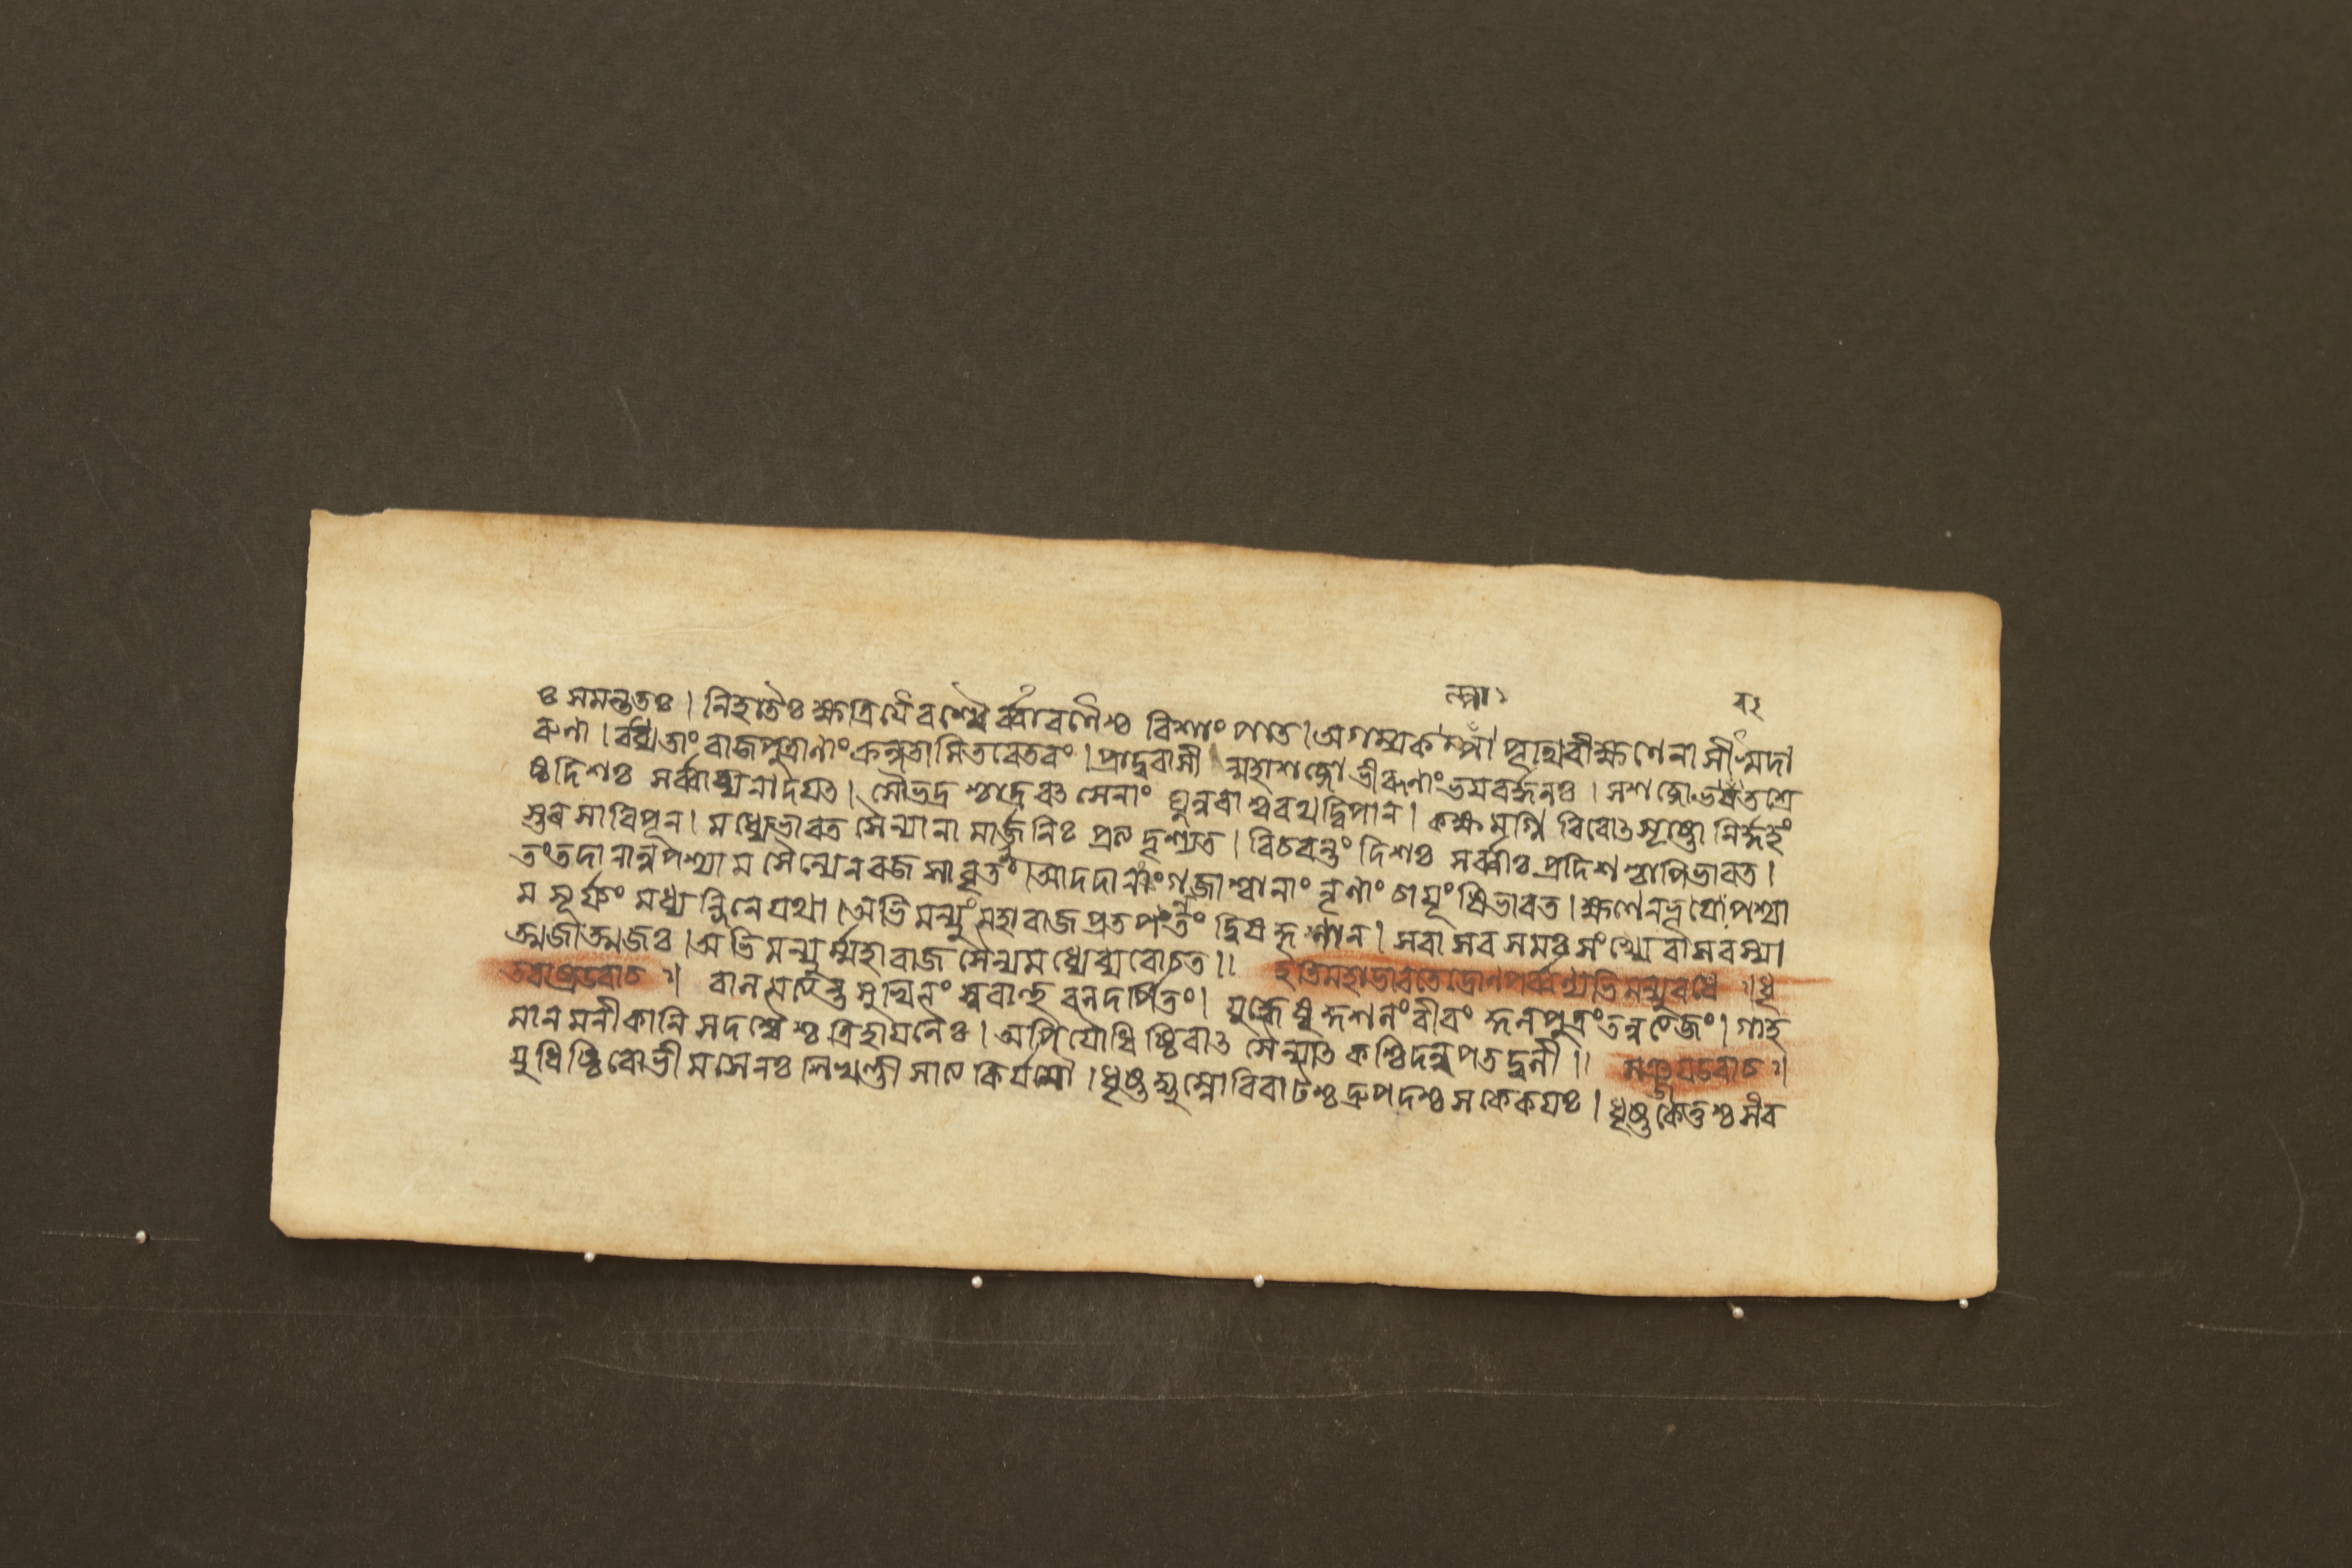 ঃ সমন্ততঃ । নিহতৈঃ ক্ষত্রিয়ৈরশ্বৈর্ব্বারণৈশ্চ বিশাং পতে । অগম্যকল্পা পৃথিবী ক্ষণেনাসীৎসুদা
রুণা । বধ্যতাং রাজপুত্রাণাং ক্রন্দতামিতরেতরং । প্রাদুরাসীন্মহাশব্দো ভীরূণাং ভয়বর্দ্ধনঃ । স শব্দো ভরতশ্রে
ষ্ঠ দিশঃ সর্ব্বা ব্যনাদয়ৎ । সৌভদ্রশ্চাদ্রবৎ সেনাং ঘ্নন্নরাশ্বরথদ্বিপান । কক্ষমগ্নিরিবোৎসৃষ্টো নির্দ্দহং
স্তরসা রিপূন । মধ্যে ভারত সৈন্যানামার্জুনিঃ প্রত্যদৃশ্যত । বিচরন্তং দিশঃ সর্ব্বাঃ প্রদিশশ্চাপি ভারত ।
তং তদা নানুপশ্যাম সৈন্যেন রজসাবৃতং । আদদানং গজাশ্বানাং নৃণাং চায়ূংষি ভারত । ক্ষণেন ভূয়োপশ্যা
ম সূর্য্যং মধ্যন্দিনে যথা । অভিমন্যুং মহারাজ প্রতপন্তং দ্বিষদ্গণান । স বাসবসমঃ সংখ্যে বাসবস্যা
ত্মজাত্মজঃ । অভিমন্যুর্ম্মহারাজ সৈন্যমধ্যে ব্যরোচত ॥ ইতি মহাভারতে দ্রোণপর্ব্বণ্যভিমন্যুবধে ॥ ধৃ
তরাষ্ট্র উবাচ ॥ বালমত্যন্তসুখিনং স্ববাহুবলদর্পিতং । যুদ্ধেষু কুশলং বীরং কুলপুত্রং তনুত্যজং । গাহ
মানমনীকানি সদশ্বৈশ্চ ত্রিহায়নৈঃ । অপি যৌধিষ্ঠিরাৎ সৈন্যাৎ কশ্চিদন্বপতদ্বলী ॥ সঞ্জয় উবাচ ॥
যুধিষ্ঠিরো ভীমসেনঃ শিখণ্ডী সাত্যকির্যমৌ । ধৃষ্টদ্যুম্নো বিরাটশ্চ দ্রুপদশ্চ সকেকয়ঃ । ধৃষ্টকেতুশ্চ সংর